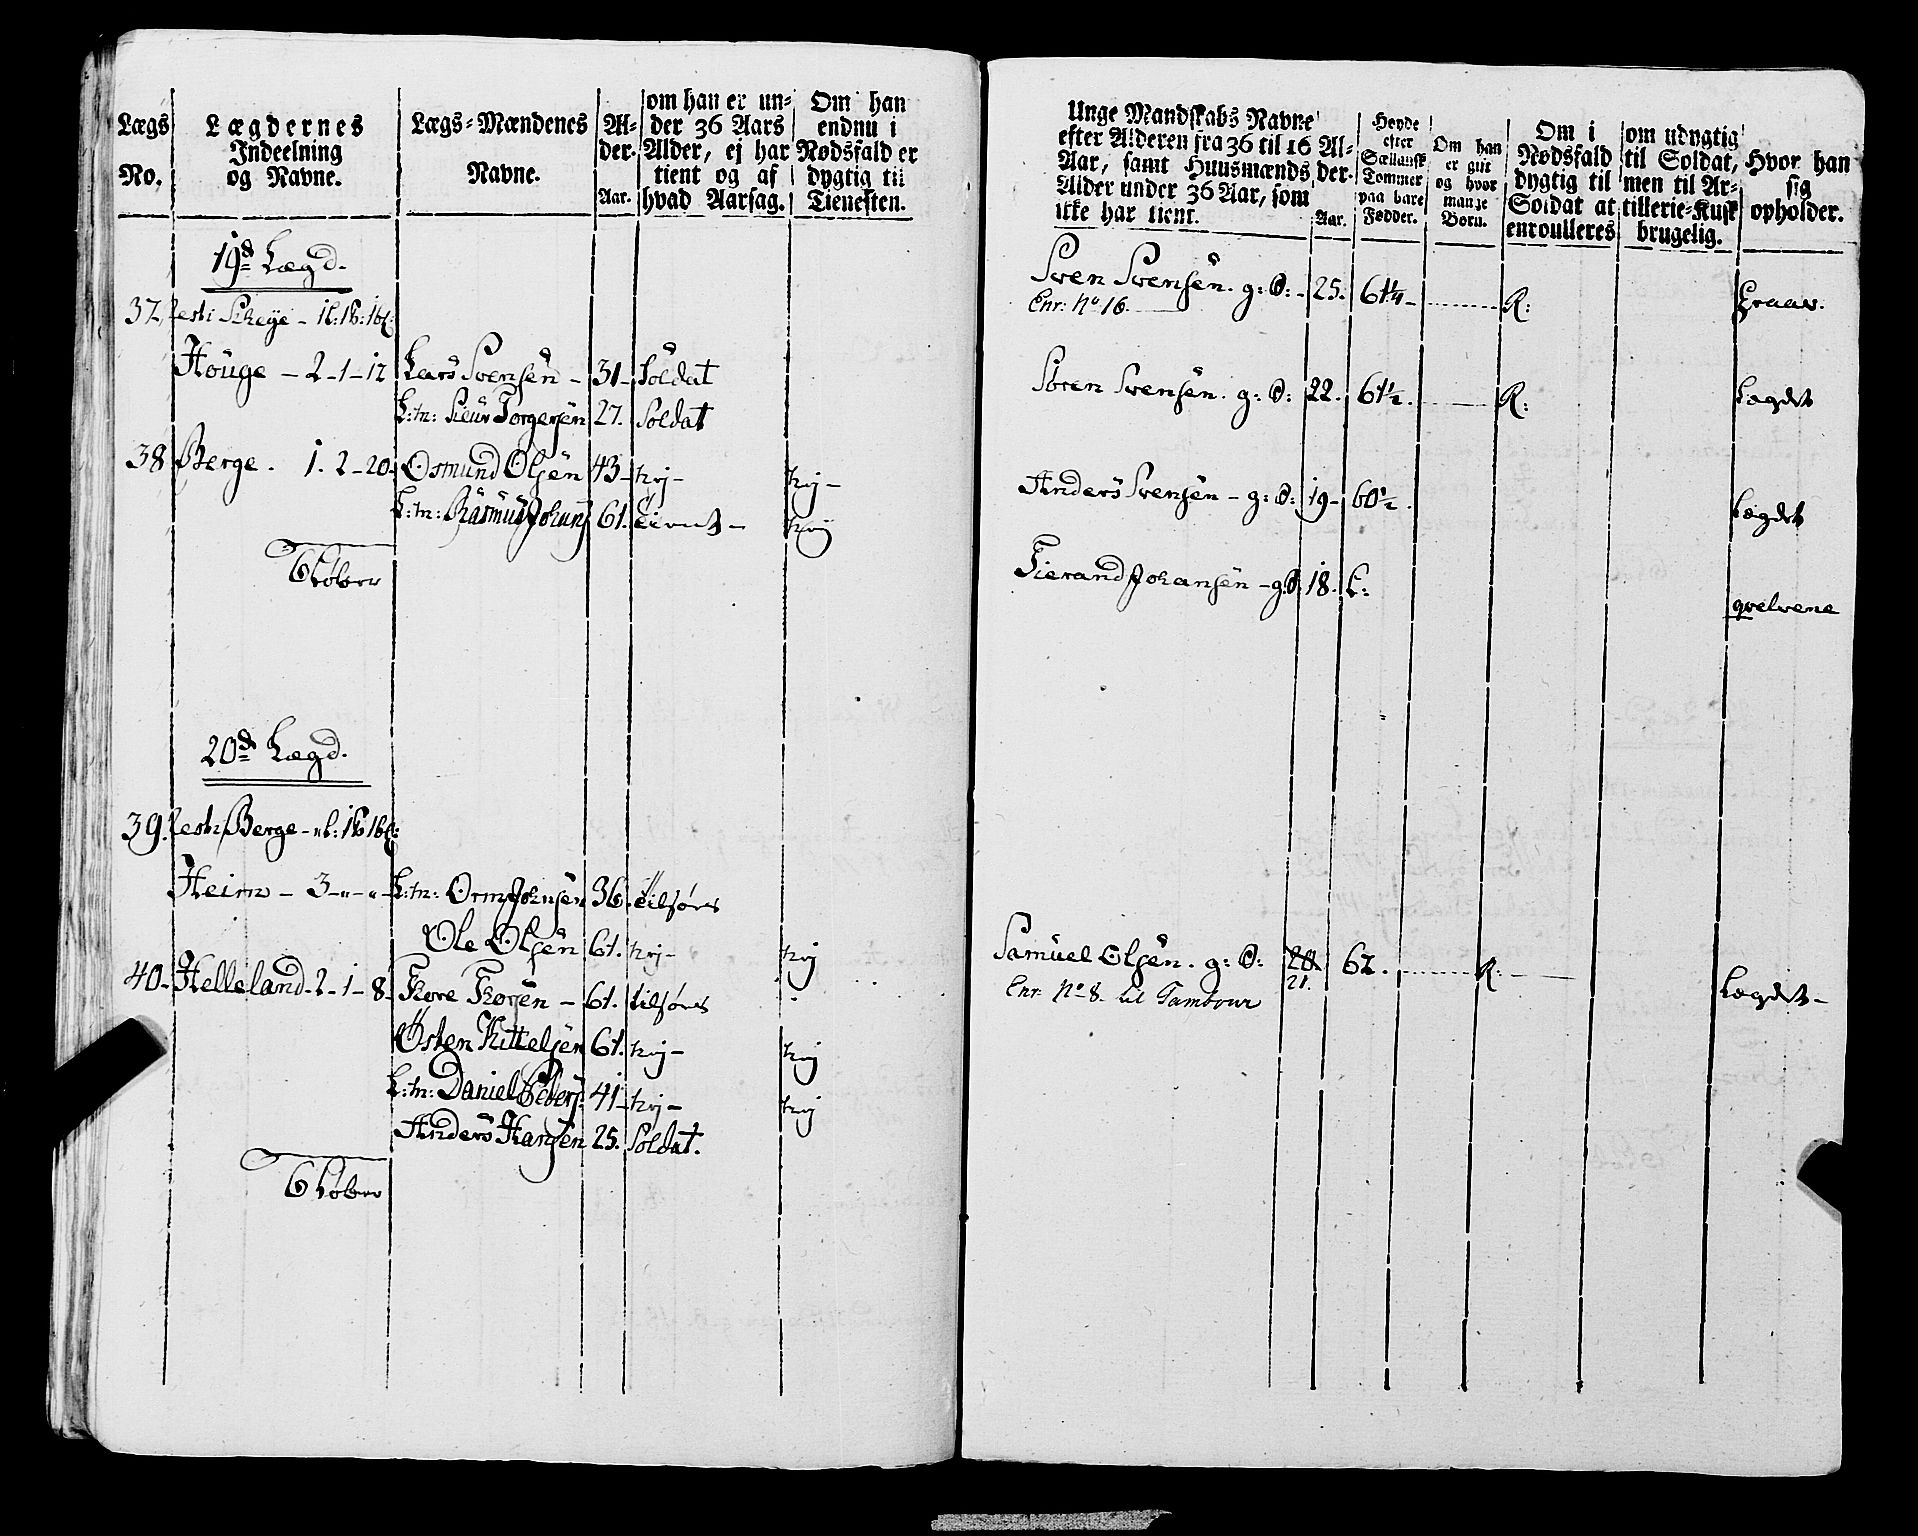 Lægs No.
Lægdernes Indeelning og Navne.
Lægs-Mændenes Navne.
Alder. Aar.
om han er under 36 Aars Alder, ej har tient og af hvad Aarsag.
Om han endnu i Nødsfald er dygtig til Tienesten.
19de Lægd.
37. Resti Skeÿe
Houge - 2 - 1 - 12 Lars Svensen - 31 - Soldat
L:m: Siur Torgersen 27. Soldat
38 Berge. 1. 2 - 20. Osmund Olsen 43 - høj - høj -
L:m: Rasmus Johans: 61. tient - høj
6 Støver
20de Lægd.
39. Resti Berge
Heim - 3 - " - " - L:m: Orm Johnsen 36. tilføres
Ole Olsen 61. høj - høj
40 - Helleland - 2 - 1 - 8 - Tore Toresen - 61. tilføres
Østen Kittelsen 61. høj - høj
L:m: Daniel Peders: 41 - høj - høj
Anders Hansen 25. Soldat.
6 Støver
Unge Mandskabs Navne efter Alderen fra 36 til 16 Aar, samt Huusmænds Alder under 36 Aar, som ikke har tient.
Alder. Aar.
Høyde efter Sællansk Tommer paa bare Fødder.
Om han er gift og hvor mange Børn.
Om i Nødsfald dygtig til Soldat at enroulleres
om udygtig til Soldat, men til Artillerie-Kusk brugelig.
Hvor han sig opholder.
Sven Svensen. g: S: - 25. 61 1/4 - R: Graav.
Enr: No 16.
Søren Svensen. g: S: 22. 61 1/2. R: Lægdet
Anders Svensen - g: S: 19 - 60 1/2. Lægdet
Tierand Johansen - g: S: 18. L: qvelvene
Samuel Olsen. g: S: 20. 62. R: Lægdet -
21.
Enr: No 8. til Tambour